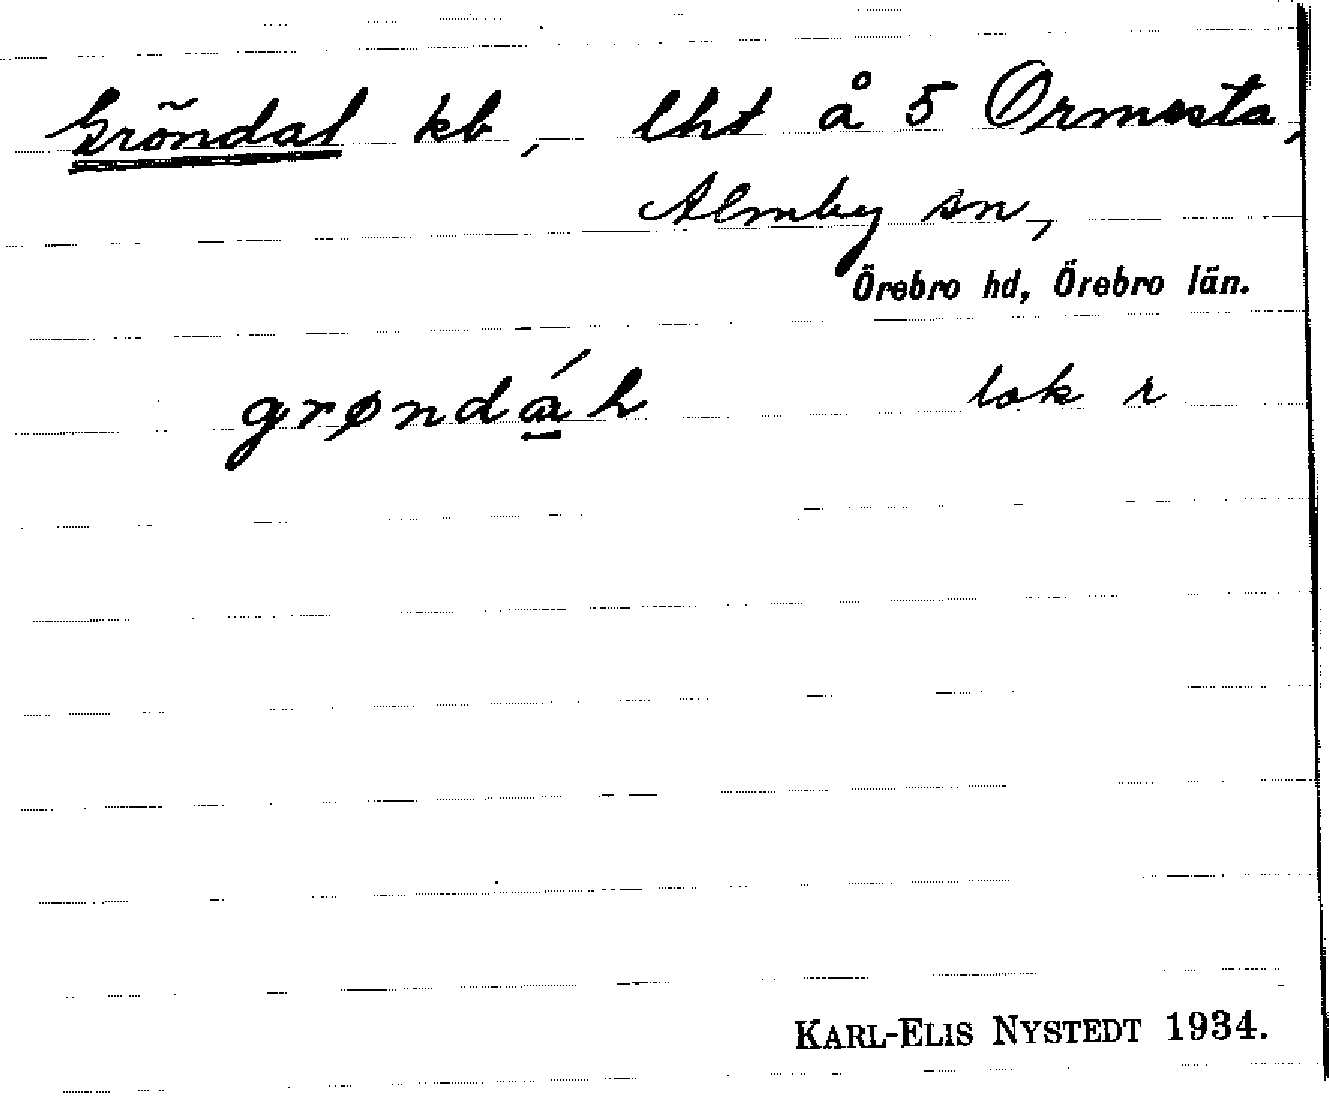 Gröndal kb, lht å 5 Ormesta,
Almby sn,
Örebro hd, Örebro län.
grøndáL lok r
KARL-ELIS NYSTEDT 1934.